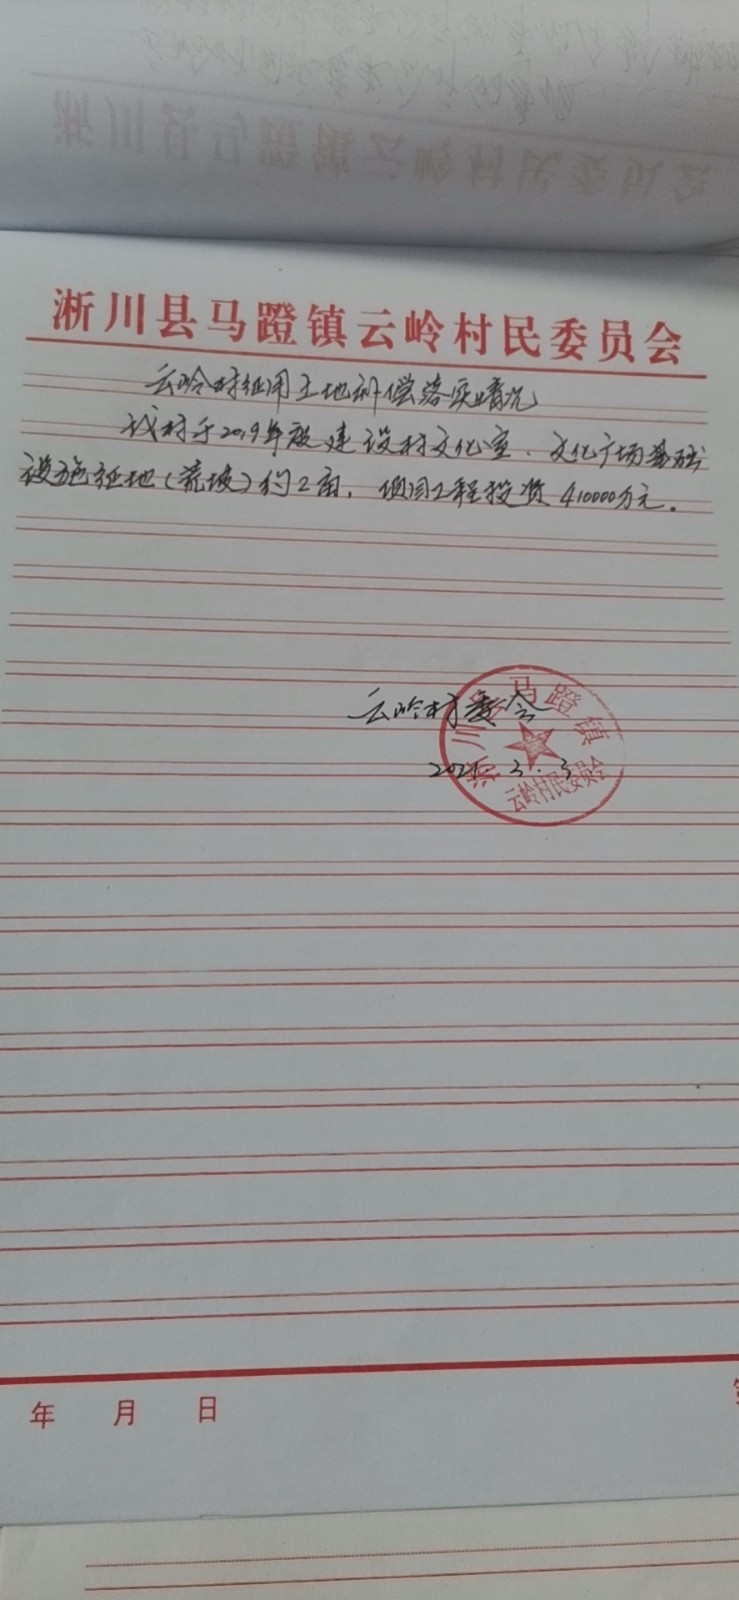 淅川县马蹬镇云岭村民委员会
云岭村征用土地补偿落实情况
我村于2019年假建设村文化室、文化广场基础
设施征地(荒坡)约2亩，项目工程投资410000万元。
云岭村委会
2021.3.3
淅川县马蹬镇
云岭村民委员会
年 月 日